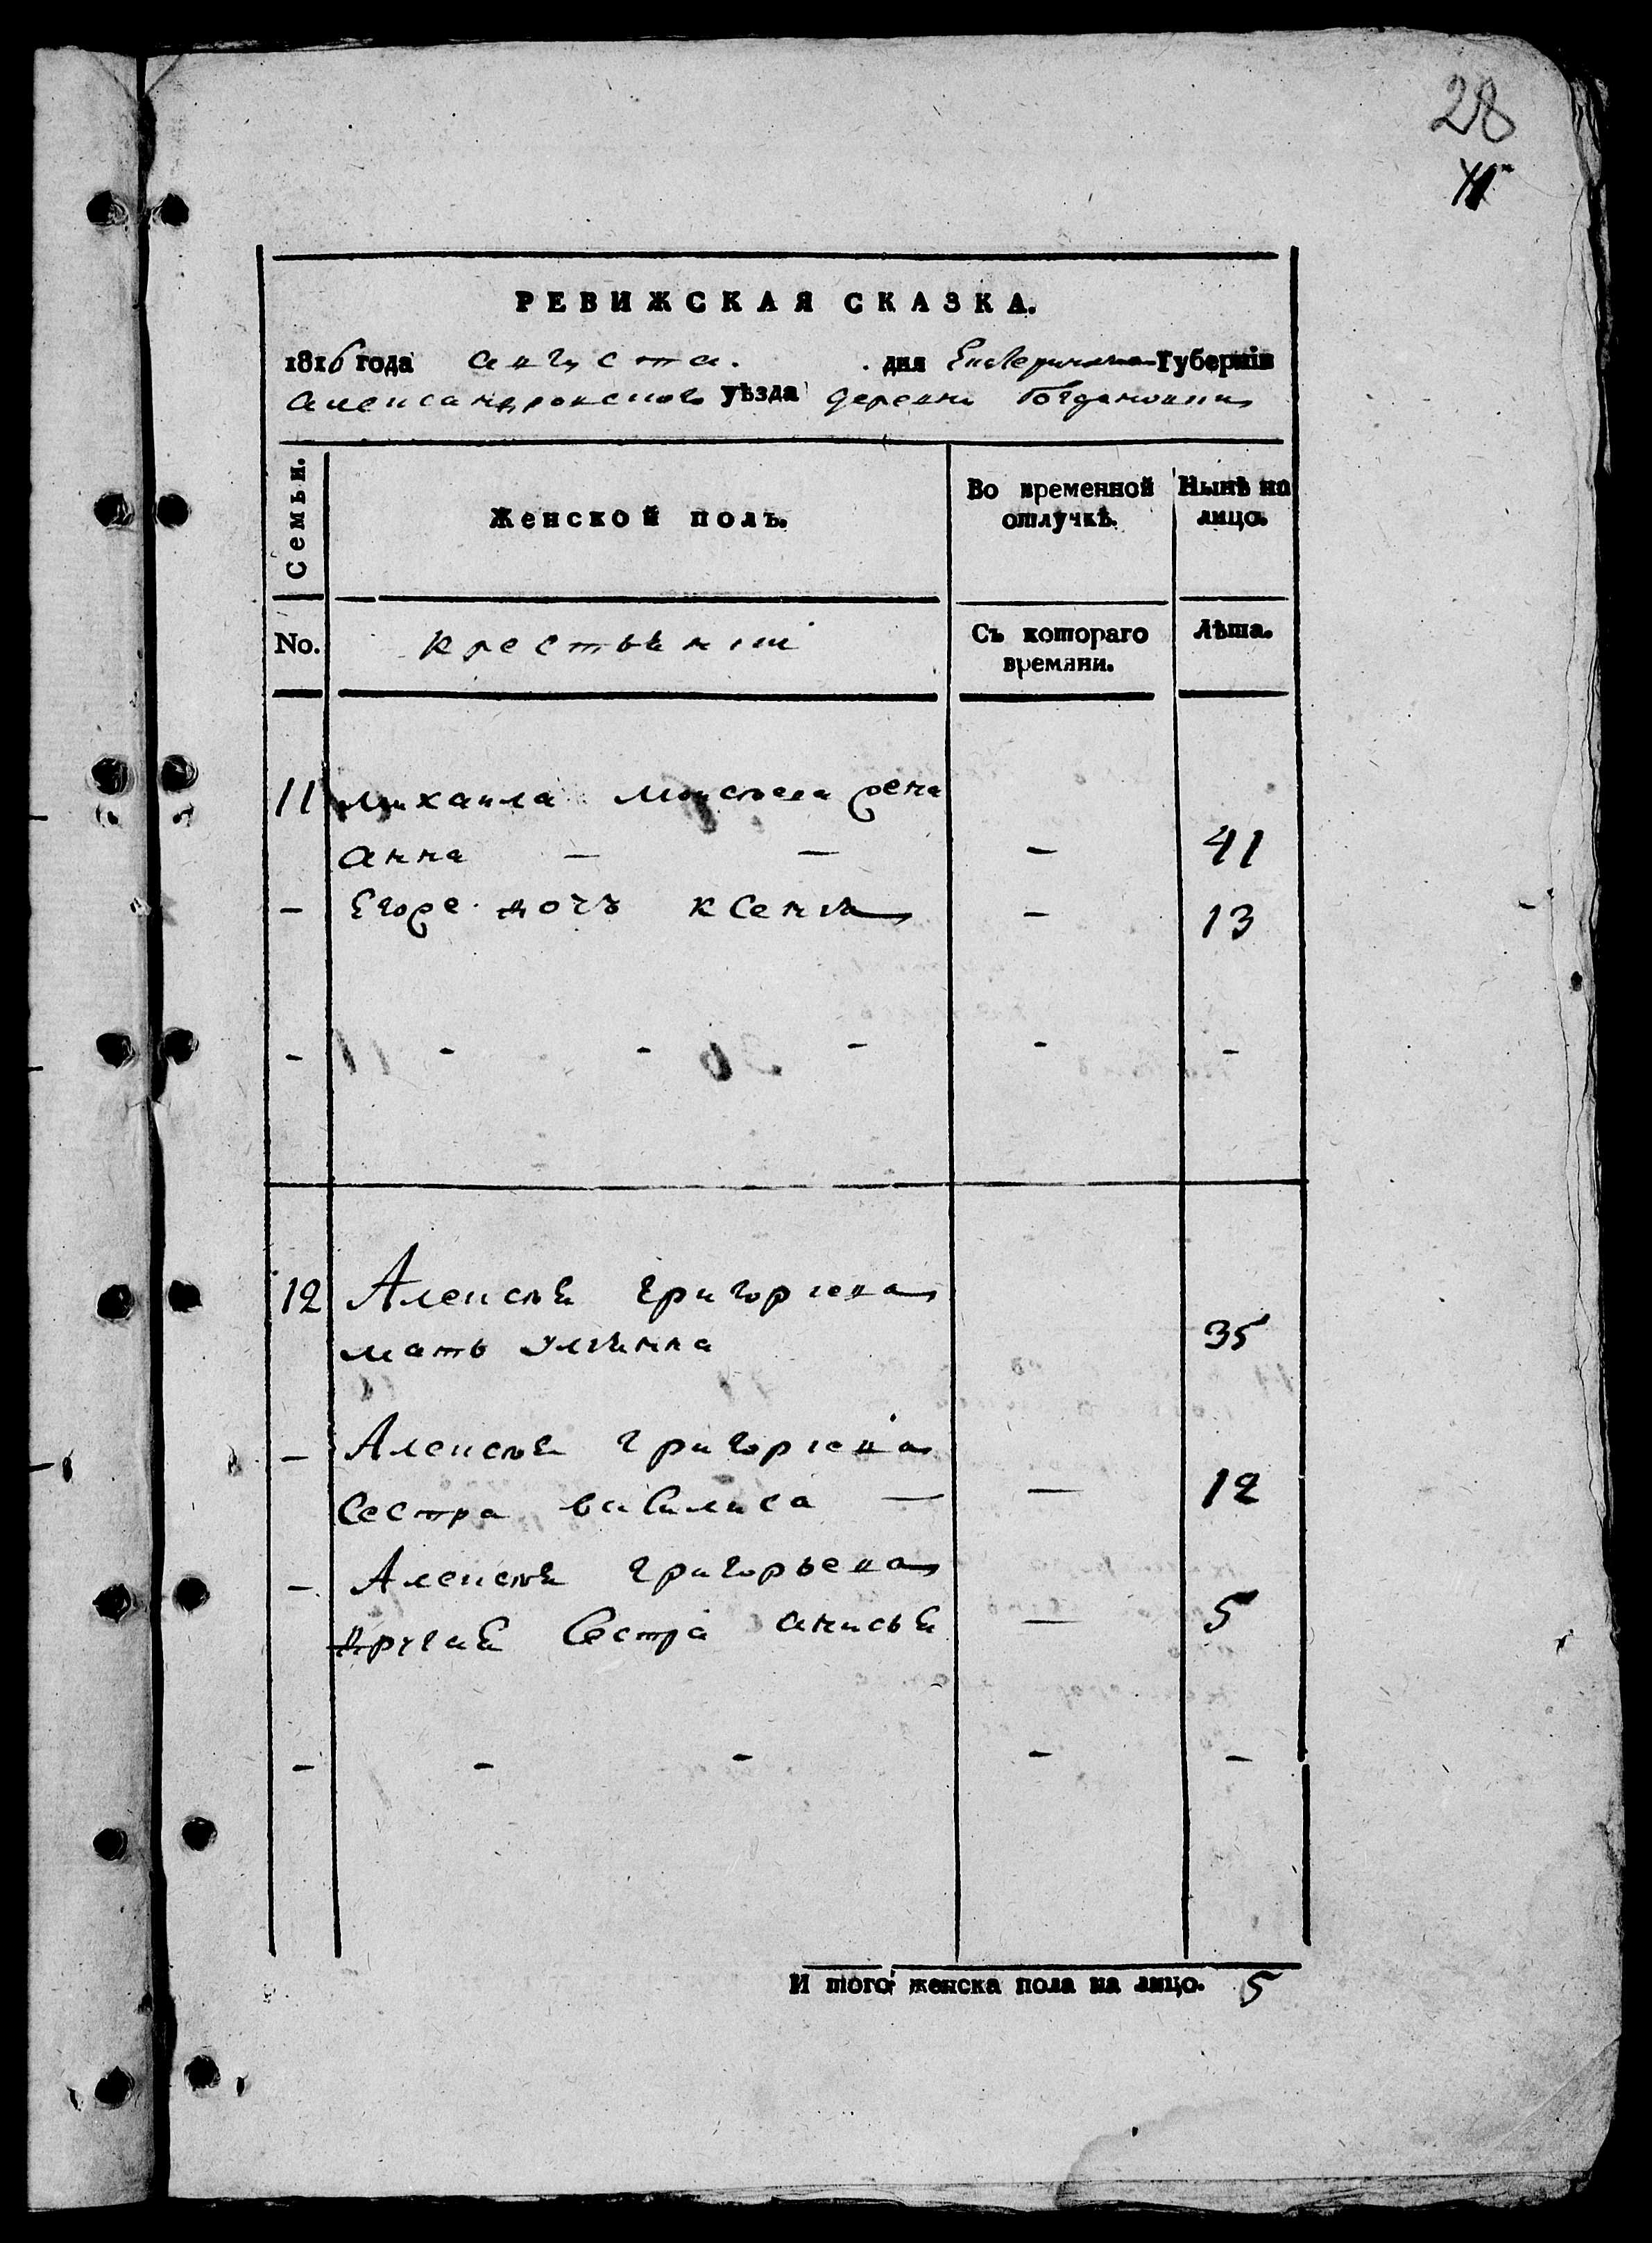 28
РЕВИЖСКАЯ СКАЗКА.
1816 года августа. дня Екатеринос Губернїи
александровского уѣзда деревни богдановки
Семьи.
Женской полъ.
Во временной отлучкѣ.
Нынѣ на лицо.
No.
крестьянїи
Съ котораго времяни.
Лѣта.
11 михаила моисѣева жена
анна — — — 41
— Егоже дочь ксенїя — 13
— — — — — —
12 Алексѣя григорїева
мать улїянна 35
— Алексѣя григорїева
сестра василиса — — 12
— Алексѣя григорьева
другая сестра анисья — 5
— — — — —
И того женска пола на лицо. 5